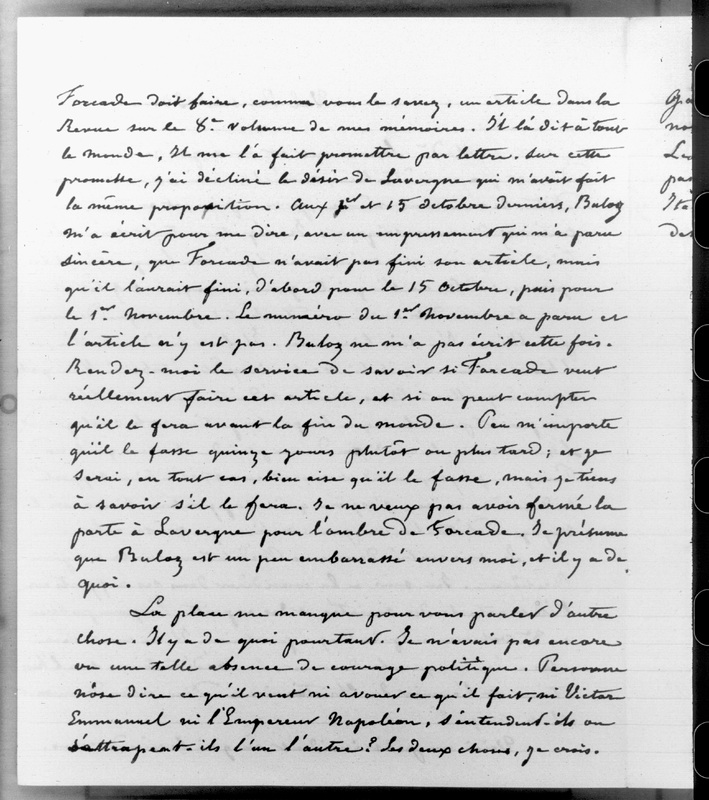 Forcade doit faire, comme vous le savez, un article dans la
Revue sur le 8.e volume de mes mémoires. Il l'a dit à tout
le monde, Il me l'a fait promettre par lettre. Sur cette
promesse, j'ai décliné le désir de Lavergne qui m'avait fait
la même proposition. Aux 1er et 15 Octobre derniers, Buloz
m'a écrit pour me dire, avec un empressement qui m'a paru
sincère, que Forcade n'avait pas fini son article, mais
qu'il l'aurait fini, d'abord pour le 15 Octobre, puis pour
le 1er Novembre. Le numéro du 1er Novembre a paru et
l'article n'y est pas. Buloz ne m'a pas écrit cette fois.
Rendez-moi le service de savoir si Forcade veut
réellement faire cet article, et si on peut compter
qu'il le fera avant la fin du monde. Peu m'importe
qu'il le fasse quinze jours plutôt ou plus tard; et je
serai, en tout cas, bien aise qu'il le fasse, mais je tiens
à savoir s'il le fera. Je ne veux pas avoir fermé la
porte à Lavergne pour l'ombre de Forcade. Je présume
que Buloz est un peu embarrassé envers moi, et il y a de
quoi.
La place me manque pour vous parler d'autre
chose. Il y a de quoi pourtant. Je n'avais pas encore
vu une telle absence de courage politique. Personne
n'ose dire ce qu'il veut ni avouer ce qu'il fait, ni Victor
Emmanuel ni l'Empereur Napoléon, s'entendent-ils ou
s'attrapent-ils l'un l'autre? Les deux choses, je crois.